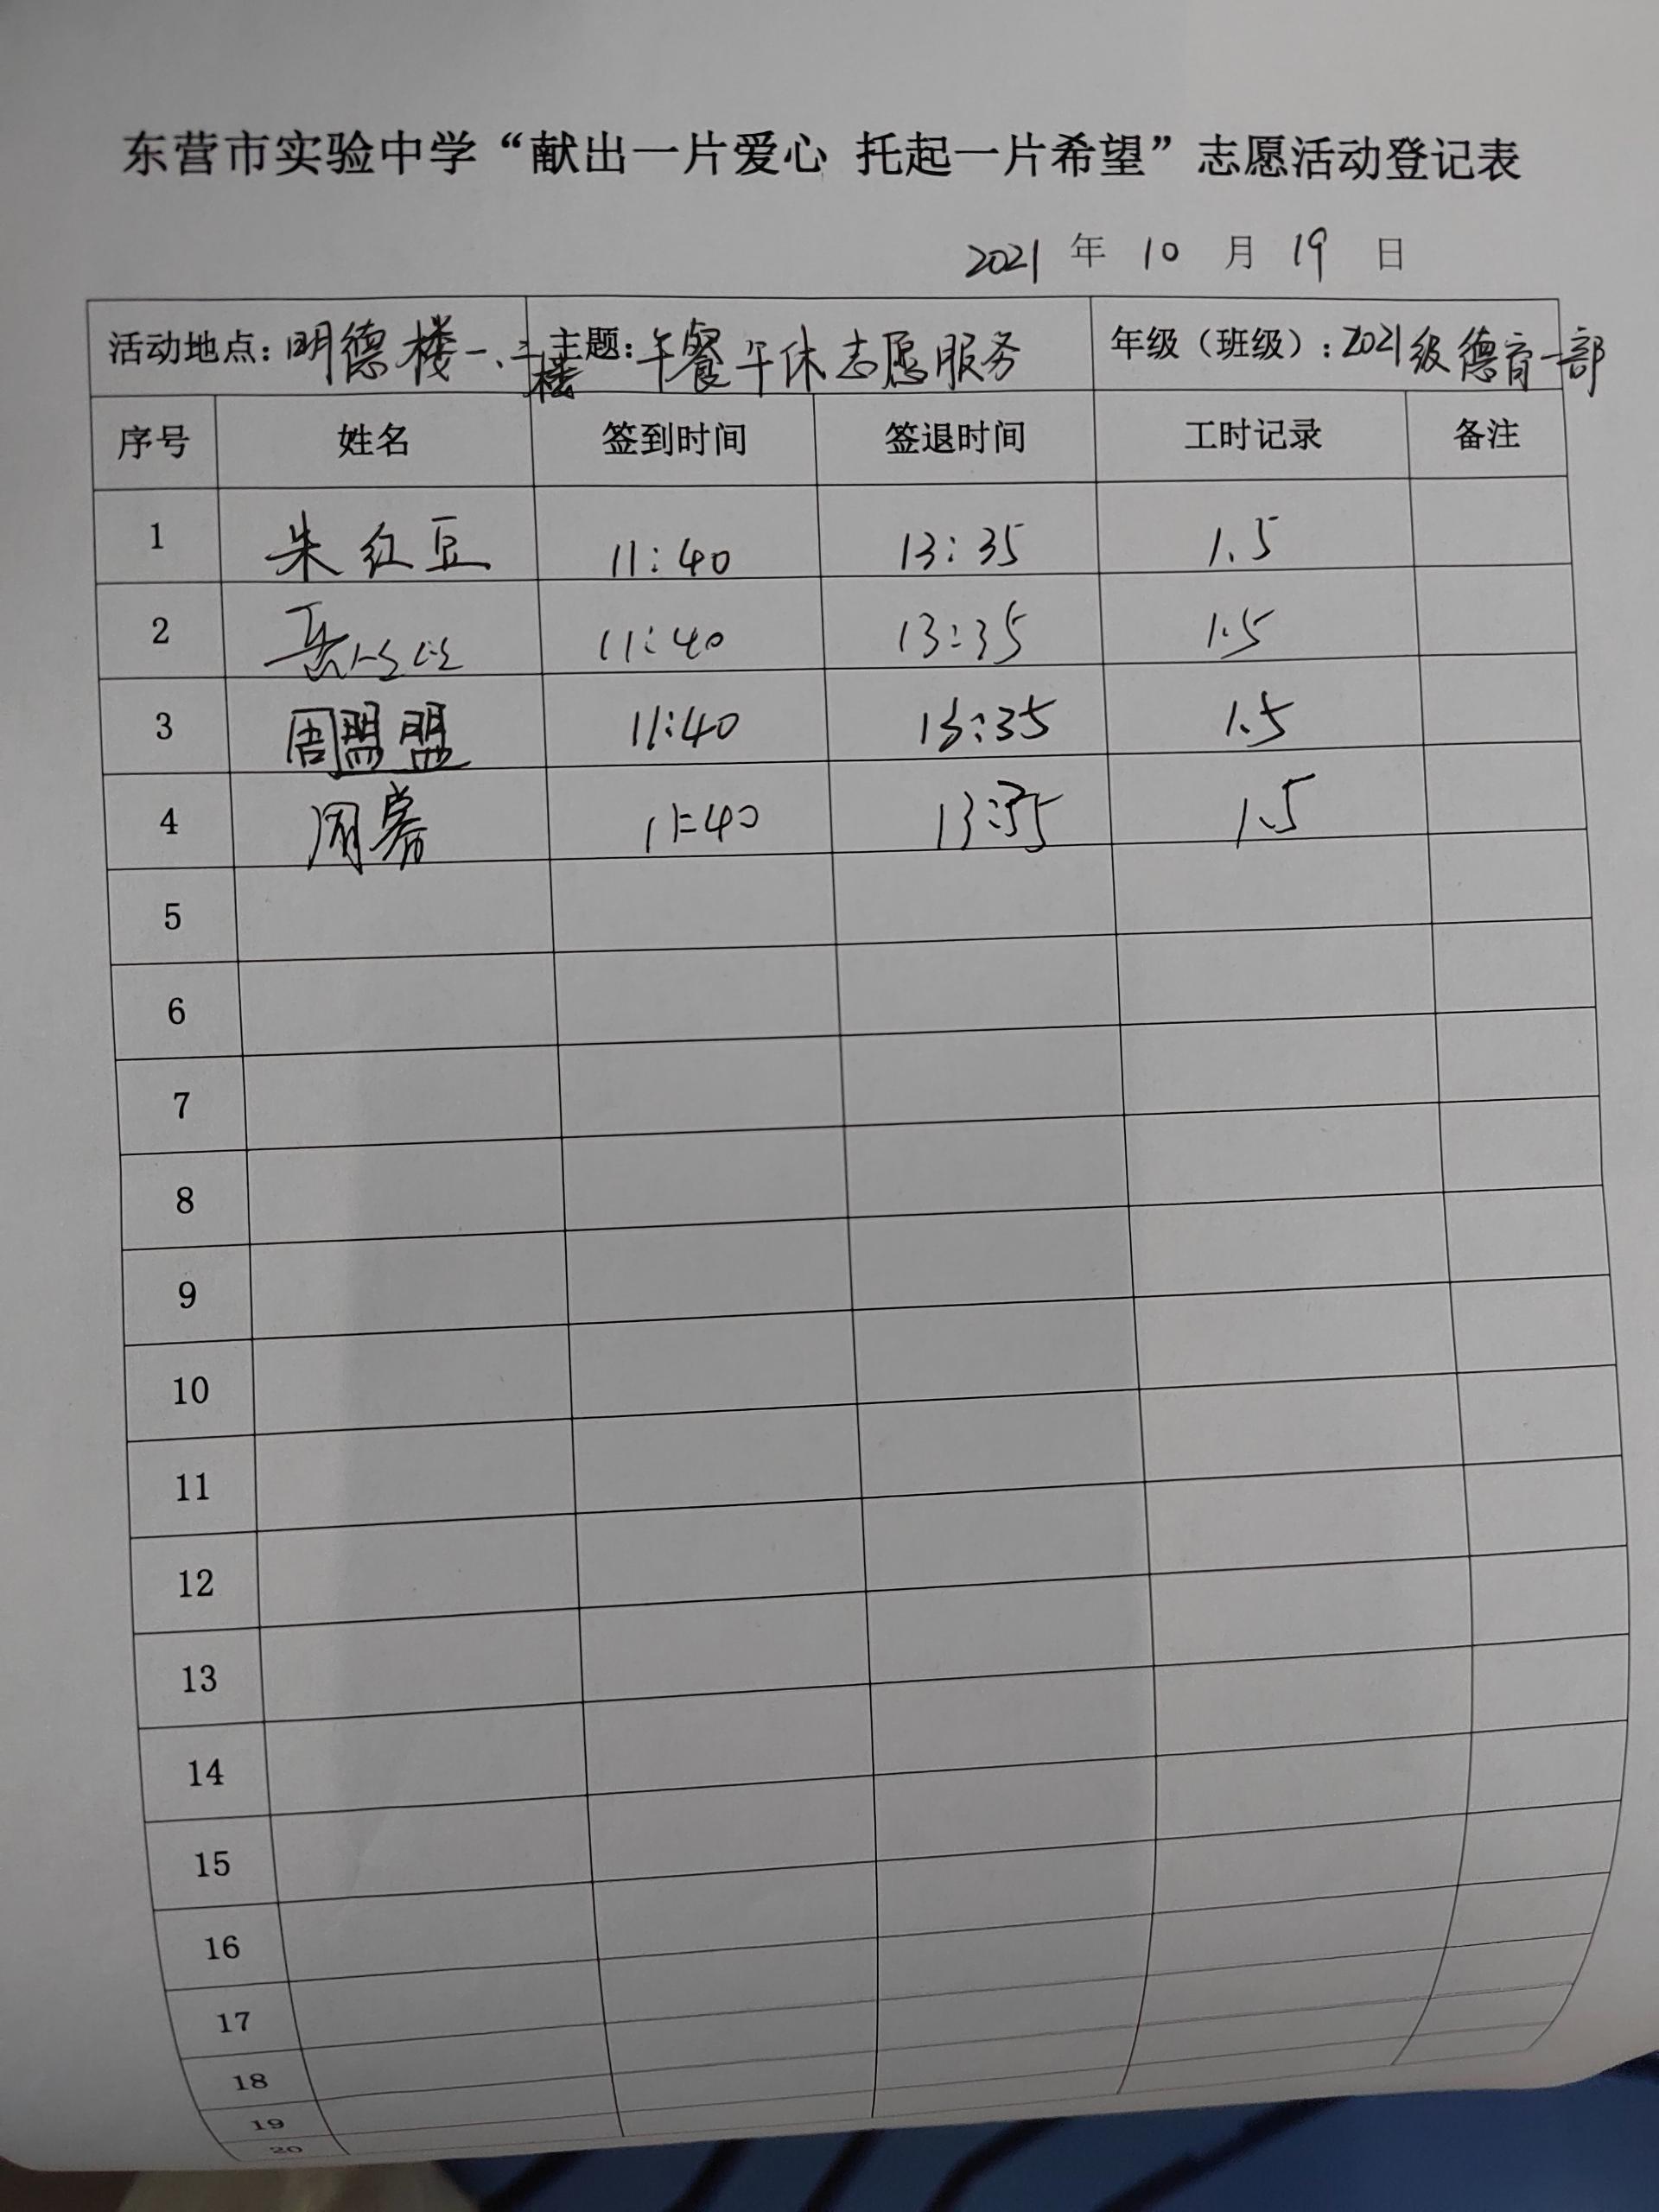 东营市实验中学“献出一片爱心 托起一片希望”志愿活动登记表
2021 年 10 月 19 日
活动地点：明德楼一、三楼 主题：午餐午休志愿服务 年级（班级）：2021级德育一部
序号 姓名 签到时间 签退时间 工时记录 备注
1 朱红豆 11:40 13:35 1.5
2 11:40 13:35 1.5
3 周盟盟 11:40 13:35 1.5
4 周 11:40 13:35 1.5
5
6
7
8
9
10
11
12
13
14
15
16
17
18
19
20